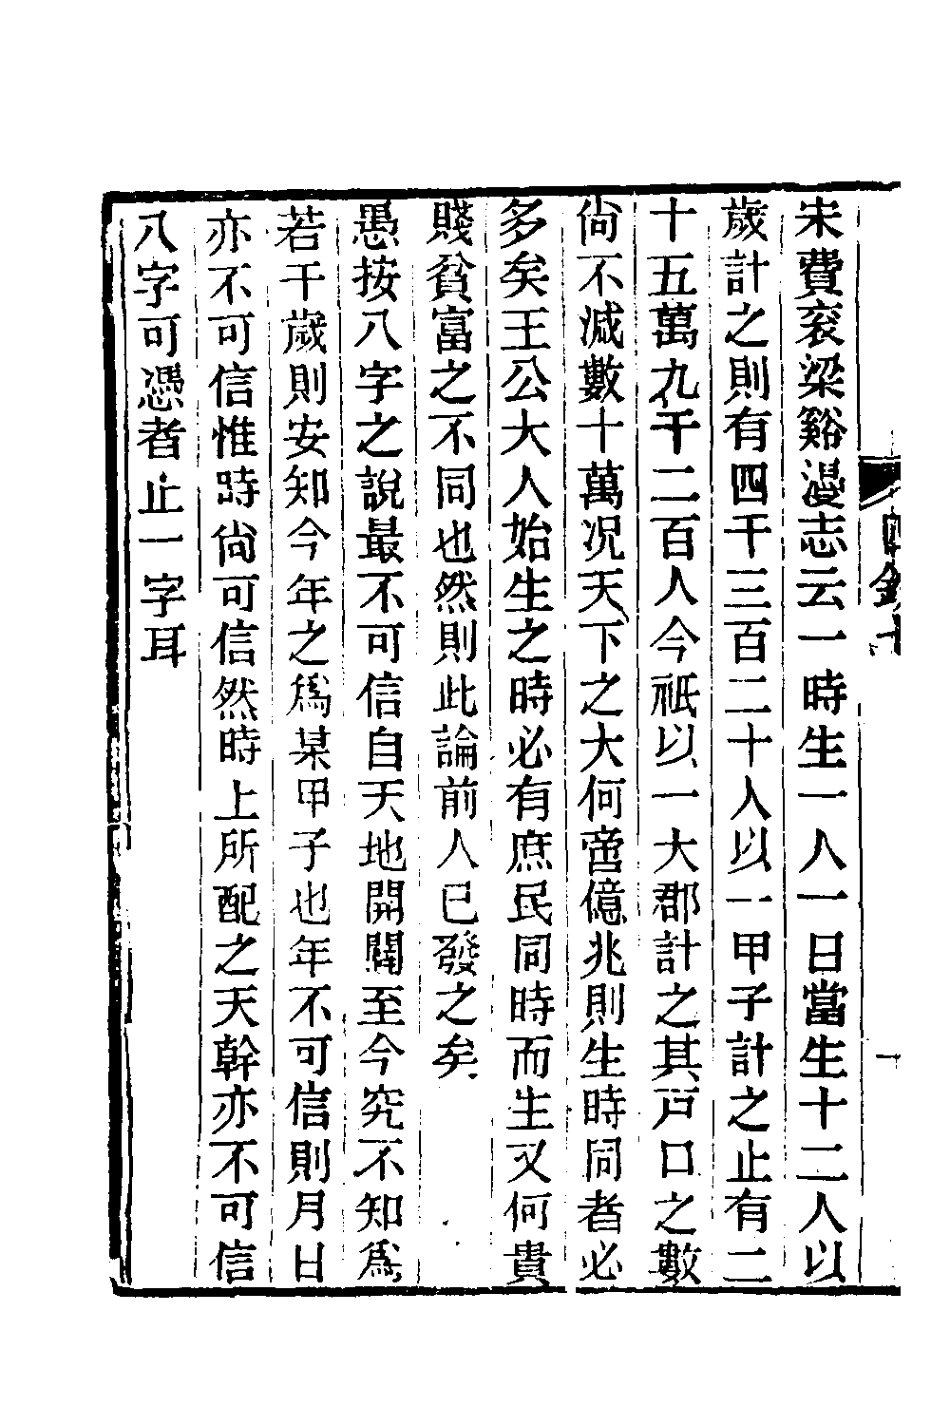 宋費衮梁谿漫志云一時生一人一日當生十二人以
歲計之則有四千三百二十人以一甲子計之止有二
十五萬九千二百人今祇以一大郡計之其戸口之數
尙不減數十萬况天下之大何啻億兆則生時同者必
多矣王公大人始生之時必有庶民同時而生又何貴
賤貧富之不同也然則此論前人已發之矣
愚按八字之說最不可信自天地開闢至今究不知爲
若干歲則安知今年之爲某甲子也年不可信則月日
亦不可信惟時尙可信然時上所配之天幹亦不可信
八字可憑者止一字耳